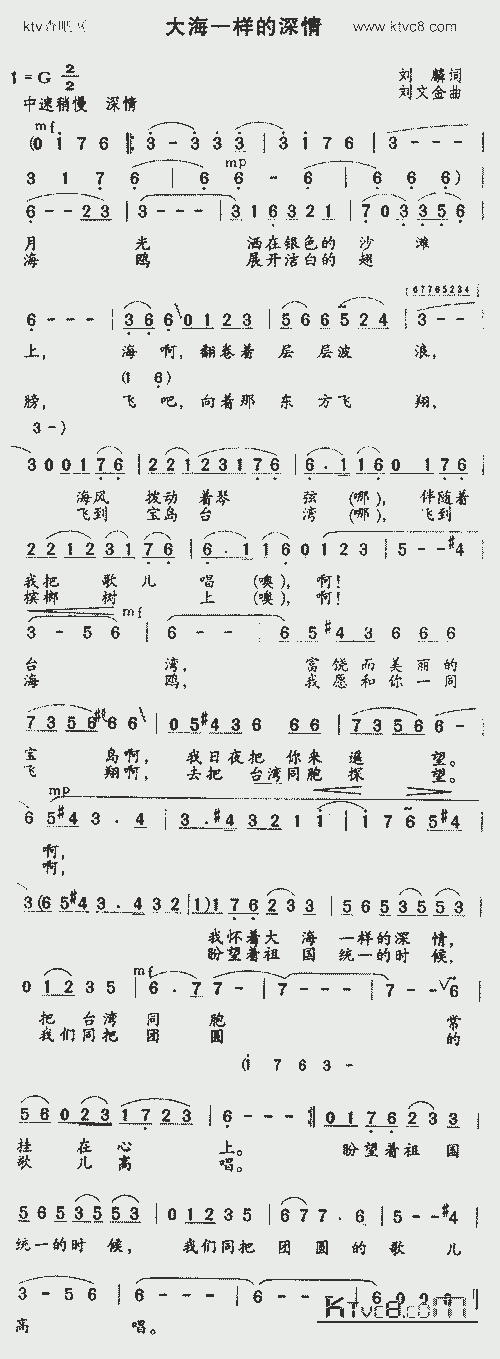 大海一样的深情
www.ktvc8.com
1=G 2/2
刘 麟词
刘文金曲
中速稍慢 深情
mf
(0 1 7 6 3 - 3 3 3 3 1 7 6 3 - - -
mp
3 1 7 6 6 6 - 6 6 6 6)
6 - - 2 3 3 - - - 3 1 6 3 2 1 7 0 3 3 5 6
月 光 洒在银色的 沙 滩
海 鸥 展开洁白的 翅
67765234
6 - - - 3 6 6 0 1 2 3 5 6 6 5 2 4 3 - -
上, 海 啊, 翻卷着 层 层波 浪,
(1 6)
膀, 飞 吧, 向着那 东 方飞 翔,
3 -)
3 0 0 1 7 6 2 2 1 2 3 1 7 6 6 . 1 1 6 0 1 7 6
海风 拨动 着琴 弦 (哪), 伴随着
飞到 宝岛 台 湾 (哪), 飞到
2 2 1 2 3 1 7 6 6 . 1 1 6 0 1 2 3 5 - - #4
我把 歌儿 唱 (噢), 啊!
槟榔 树 上 (噢), 啊!
mf
3 - 5 6 6 - - 6 5 #4 3 6 6 6
台 湾, 富饶而美丽的
海 鸥, 我愿和你一同
7 3 5 6 6 6 0 5 #4 3 6 6 6 7 3 5 6 6 -
宝 岛啊, 我日夜把 你来 遥 望。
飞 翔啊, 去把 台湾同胞 探 望。
mp
6 5 #4 3 . 4 3 . #4 3 2 1 1 1 7 6 5 #4
啊,
啊,
3 (6 5 #4 3 . 4 3 2 1) 1 7 6 2 3 3 5 6 5 3 5 5 3
我怀着大 海 一样的深 情,
盼望着祖 国 统一的时 候,
mf
0 1 2 3 5 6 . 7 7 - 7 - - - 7 - - 6
把 台湾 同 胞 常
我们同把 团 圆 的
(1 7 6 3 -
5 6 0 2 3 1 7 2 3 6 - - - 0 1 7 6 2 3 3
挂 在 心 上。 盼望着祖 国
歌 儿 高 唱。
5 6 5 3 5 5 3 0 1 2 3 5 6 7 7 . 6 5 - - #4
统一的时 候, 我们同把 团 圆 的 歌 儿
3 - 5 6 6 - - - 6 - - 6 0 0 0
高 唱。
Ktvc8.com